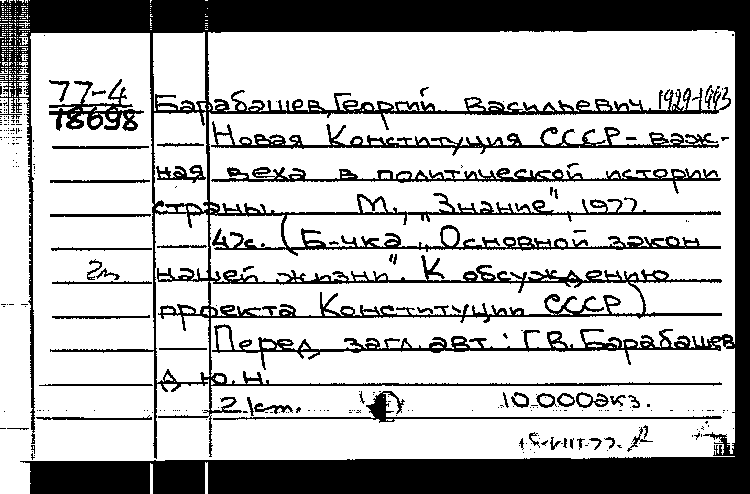 77-4
18698
Барабашев, Георгий Васильевич, 1929-1993
Новая Конституция СССР - важ-
ная веха в политической истории
страны. М., "Знание", 1977.
47с. (Б-чка "Основной закон
нашей жизни". К обсуждению
проекта Конституции СССР)
Перед загл. авт.: Г.В. Барабашев
д. ю. н.
10.000экз.